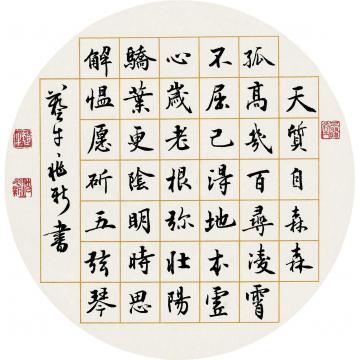 天質自森森
孤高幾百尋淩霄
不屈己得地本虛
心歲老根弥壯陽
驕葉更陰明時思
解愠愿斫五弦琴
書